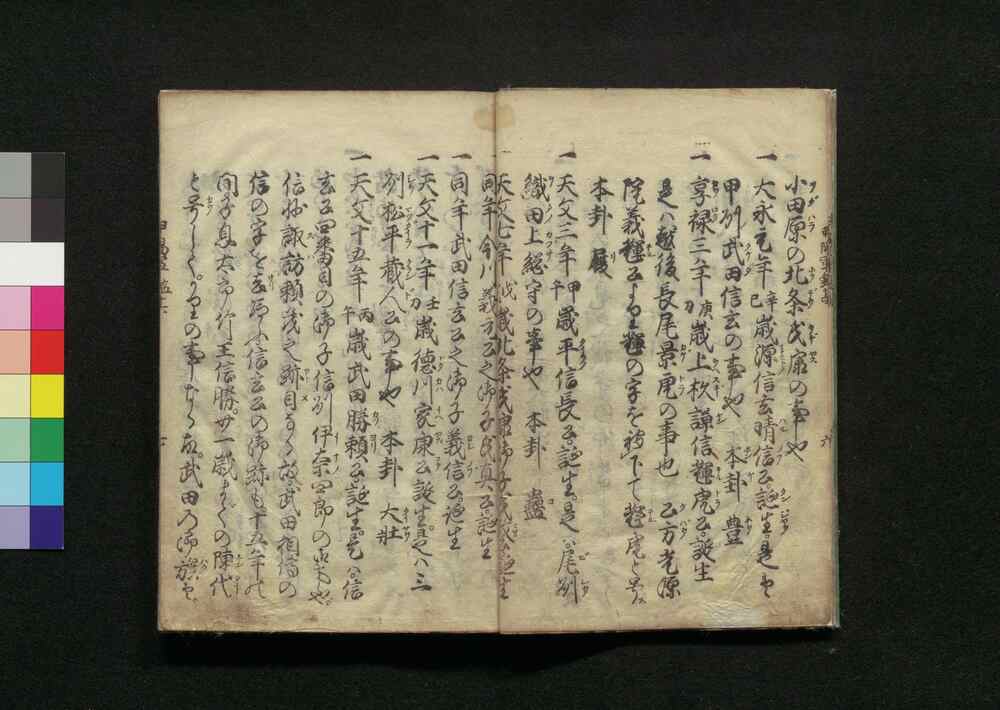 小田原の北条氏康の事也
一 大永元年辛巳歳源信玄晴信公誕生是ハ
甲州武田信玄の事也 本卦 豊
一 享禄三年庚刀歳上杦謙信輝虎公誕生
是ハ越後長尾景虎の事也 公方光源
院義輝公より輝の字を被下て輝虎と号ス
本卦 履
一 天文三年甲午歳平信長公誕生是ハ尾州
織田上総守の事也 本卦 蠱
天文七年戊歳北条氏康御子氏政公誕生
同年今川義方公之御子氏真公誕生
一 同年武田信玄公之御子義信公誕生
一 天文十一年壬刀歳徳川家康公誕生是ハ三
州松平蔵人公の事也 本卦 大壮
一 天文十五年丙午歳武田勝頼公誕生是ハ信
玄公四番目の御子信州伊奈四郎の事也
信州諏訪頼茂之跡目なる故武田相傳の
信の字を
信玄公の御跡も十五年の
間子息太郎竹王信勝廿一歳までの陳代
と号して
の事なる故武田の御旗